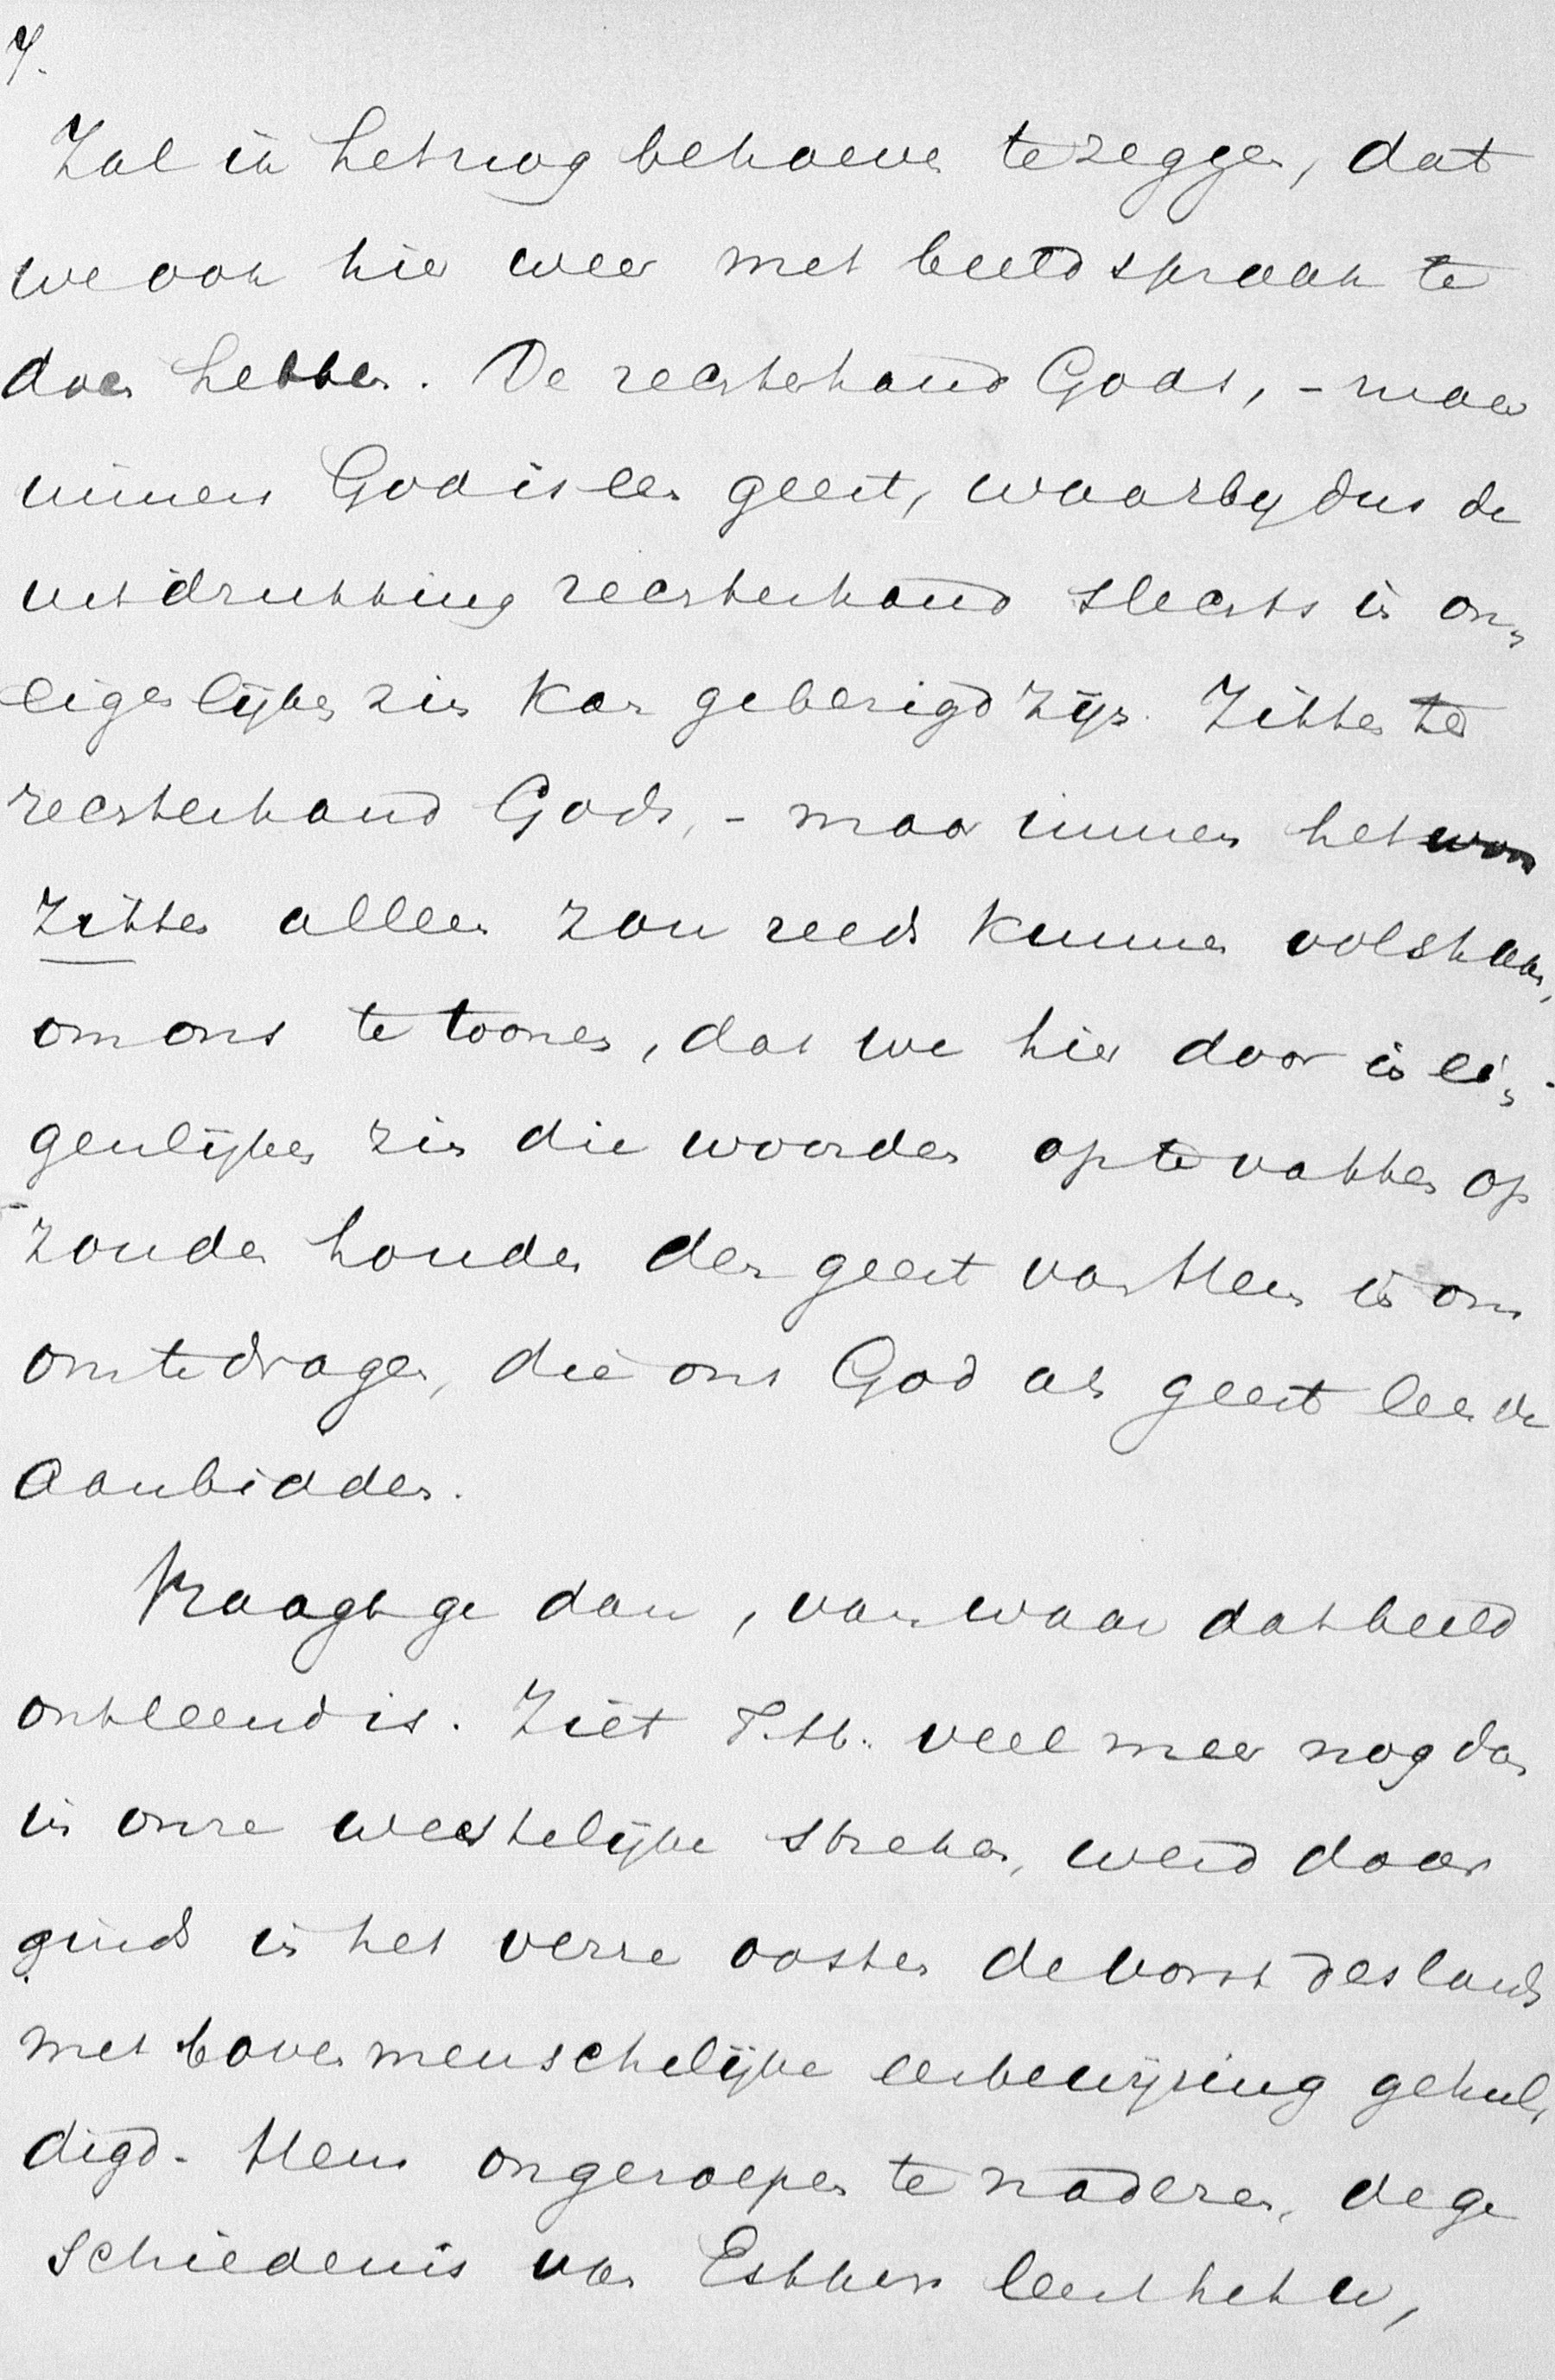 7.
Zal ik het nog behoeven te zeggen, dat
we ook hier weer met beeldspraak te
doen hebben. De rechterhand Gods, - maar
immers God is een geest, waarby dus de
uitdrukking rechterhand slechts in on„
eigenlijken zin kan gebezigd zijn. Zitten ter
rechterhand Gods, - maar immers het
zitten alleen zou reeds kunnen volstaan,
om ons te toonen, dat we hier door in ei„
genlijken zin die woorden op te vatten op
zouden houden den geest van Hem in ons
om te dragen, die ons God als geest leerde
aanbidden.
Vraagt ge dan, van waar dat beeld
ontleend is. Ziet T.H. veel meer nog dan
in onze westelijke streken, werd daar
ginds in het verre oosten de vorst des lands
met bovenmenschelijke eerbewijzing gehul„
digd. Hem ongeroepen te naderen, de ge
schiedenis van Esther leert het u,